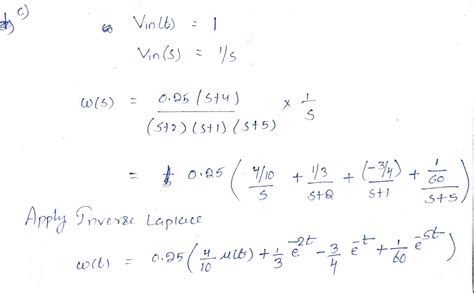 c)
Vin(t) = 1
Vin(s) = 1/s
ω(s) = 0.25 (s+4) / (s+2) (s+1) (s+5) × 1/s
= 0.25 ( 4/10 / s + 1/3 / s+2 + (-3/4) / s+1 + 1/60 / s+5 )
Apply Inverse Laplace
ω(t) = 0.25 ( 4/10 u(t) + 1/3 e^-2t - 3/4 e^-t + 1/60 e^-5t )